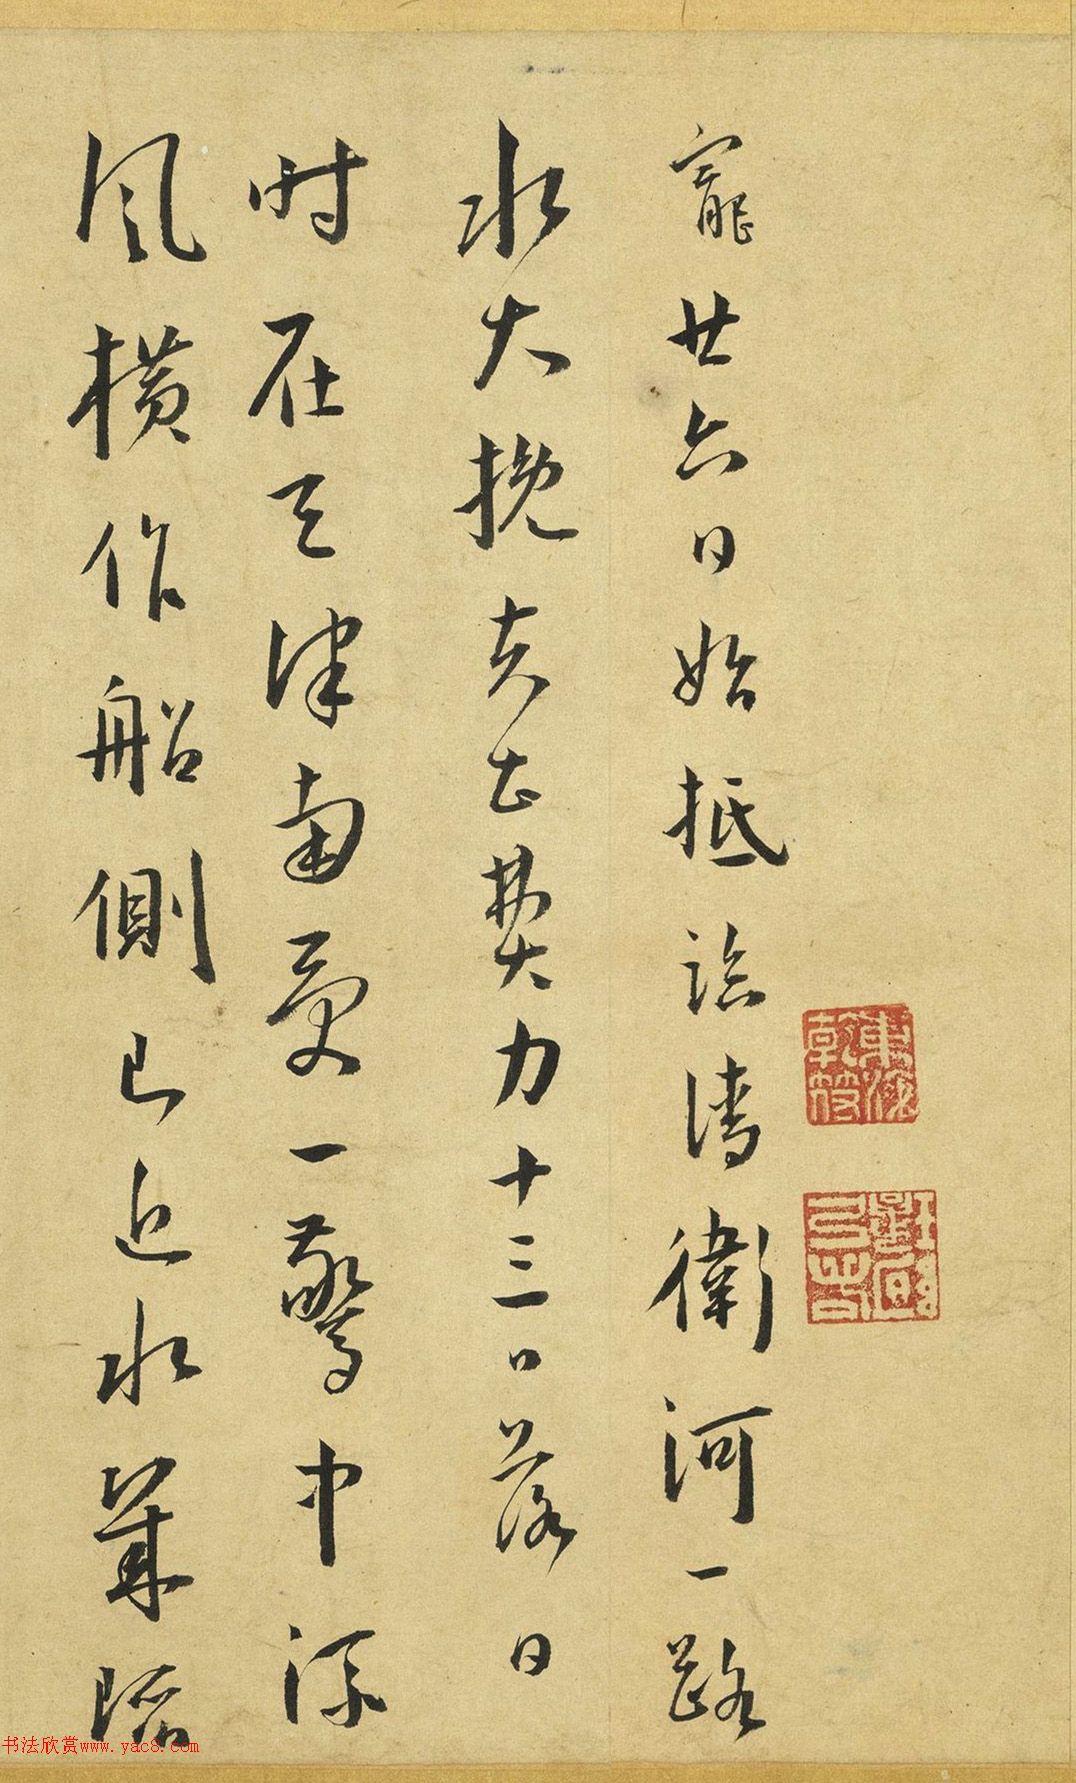 寵廿六日始抵臨清衛河一路
水大挽夫甚費力十三日落日
时在天津南受一驚中流
風橫作船側已近水幾陷
书法欣赏www.yac8.com